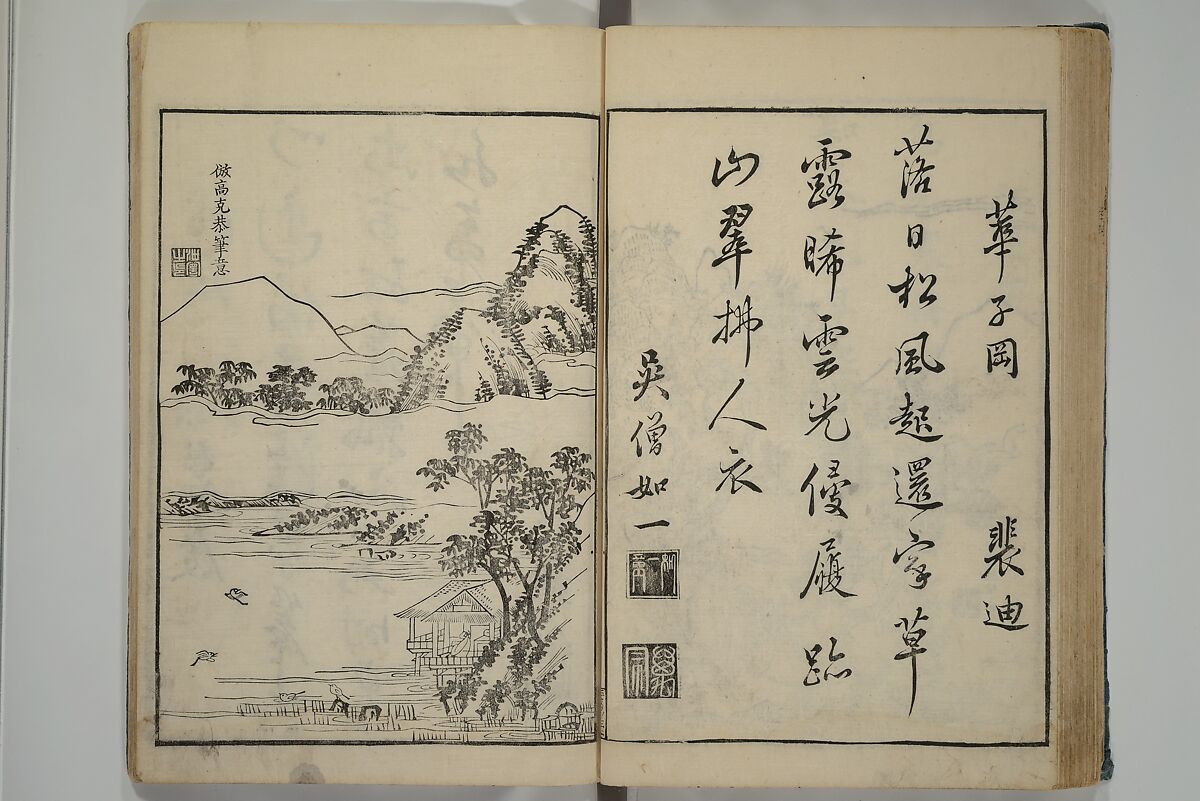 華子岡　裴迪
落日松風起還家草
露晞雲光侵履跡
山翠拂人衣
吳僧如一
倣高克恭筆意